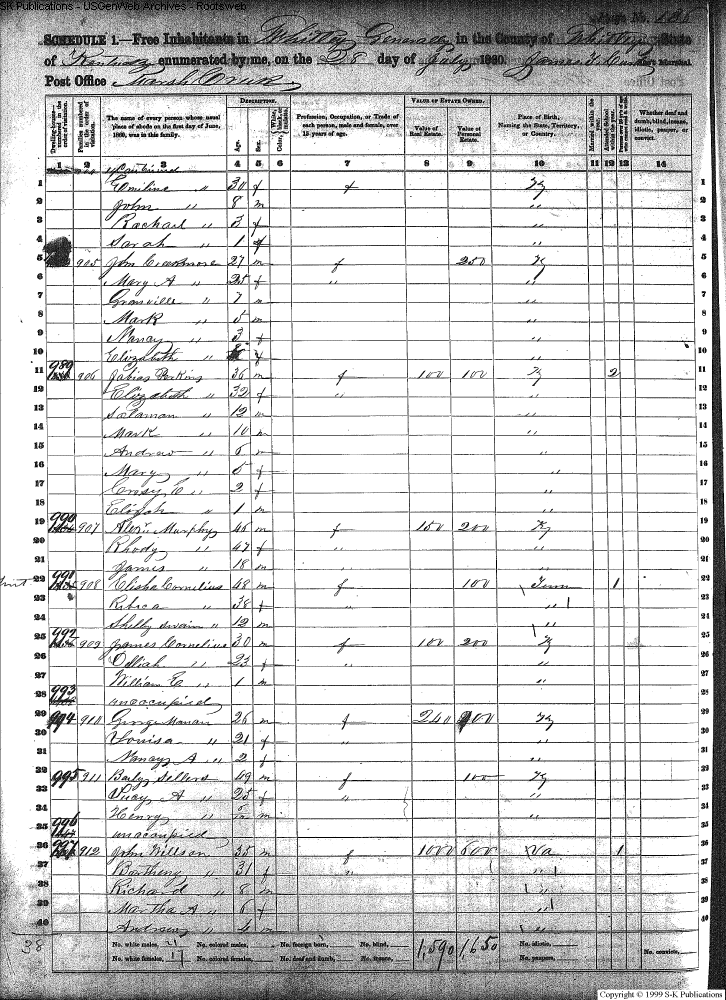 SK Publications - USGenWeb Archives - Rootsweb
Page No.
SCHEDULE 1.—Free Inhabitants in Whitley Generally in the County of Whitley State
of Kentucky enumerated by me, on the 28 day of July 1860. James Ass't Marshal.
Post Office Marsh Creek
DESCRIPTION. VALUE OF ESTATE OWNED.
Dwelling-houses—numbered in the order of visitation. Families numbered in the order of visitation. The name of every person whose usual place of abode on the first day of June, 1860, was in this family. Age. Sex. Color, Profession, Occupation, or Trade of each person, male and female, over 15 years of age. Value of Real Estate. Value of Personal Estate. Place of Birth, Naming the State, Territory, or Country. Married within the year. Attended School within the year. Whether deaf and dumb, blind, insane, idiotic, pauper, or convict.
1 2 3 4 5 6 7 8 9 10 11 12 13 14
1 Emiline " 30 f f Ky 1
2 John " 8 m " 2
3 Rachael " 3 f " 3
4 Sarah " 1 f " 4
5 905 John 27 m f 250 Ky 5
6 Mary A " 25 f " " 6
7 Granville " 7 m " 7
8 Mark " 5 m " 8
9 Nancy " 3 f " 9
10 Elizabeth " f " 10
11 989 906 Perkins 36 m f 100 100 Ky 2 11
12 Elizabeth " 32 f " " 12
13 Solaman " 12 m " 13
14 Mark " 10 m " 14
15 Andrew " 6 m " 15
16 Mary " 5 f " 16
17 E " 2 f " 17
18 Elijah " 1 m " 18
19 990 907 Murphy 46 m f 150 200 Ky 19
20 Rhody " 47 f " " 20
21 James " 18 m " " 21
22 991 908 Elisha Cornelius 48 m f 100 Tenn 1 22
23 Ribeca " 38 f " " 23
24 Shelby Swain " 12 m " 24
25 992 909 James Cornelius 30 m f 100 200 Ky 25
26 " 23 f " " 26
27 William C " 1 m " 27
28 993 unoccupied 28
29 994 910 George Manan 26 m f 240 Ky 29
30 Louisa " 21 f " " 30
31 Nancy A " 2 f " 31
32 995 911 Baily Sellers 49 m f 100 Ky 32
33 A " 25 f " " 33
34 Henry " m " 34
35 996 unoccupied 35
36 997 912 John Willson 35 m f 1000 600 Va 1 36
37 " 31 f " 37
38 Richard " 8 m " 38
39 Martha A " 6 f " 39
40 Andrew " 4 m " 40
38 No. white males, 21 No. colored males, No. foreign born, No. blind, 1,590 1,650 No. idiotic, No. convicts,
No. white females, 17 No. colored females, No. deaf and dumb, No. insane, No. paupers,
Copyright © 1999 S-K Publications